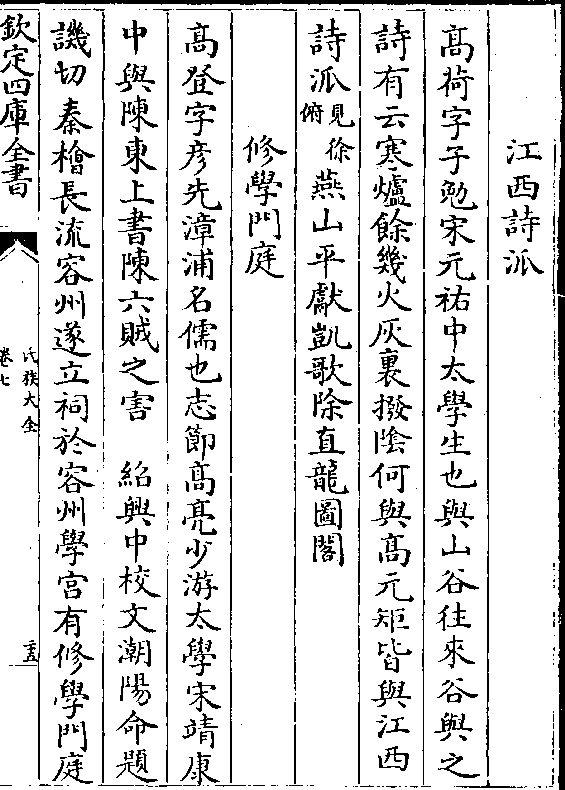 江西詩派
高荷字子勉宋元祐中太學生也與山谷往來谷與之
詩有云寒爐餘幾火灰裏撥陰何與高元矩皆與江西
詩派見徐俯燕山平獻凱歌除直龍圖閣
修學門庭
高登字彥先漳浦名儒也志節高亮少游太學宋靖康
中與陳東上書陳六賊之害　紹興中校文潮陽命題
譏切秦檜長流容州遂立祠於容州學宮有修學門庭
欽定四庫全書
氏族大全
卷七
十五